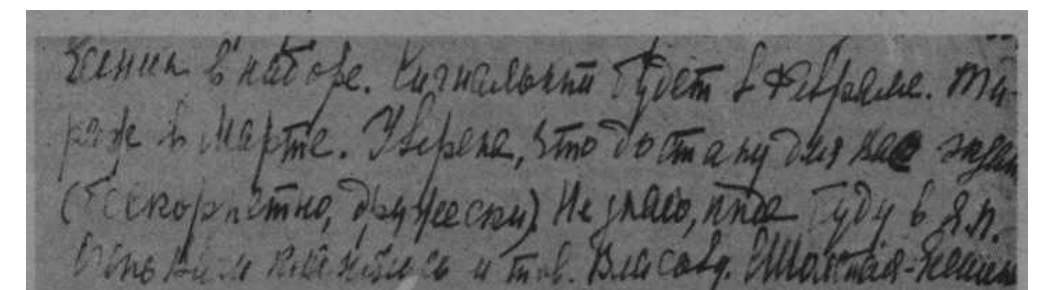 Есенин в наборе. Сигнальный будет в феврале. Ти-
раж в марте. Уверена, что достану для вас экзем
(бескорыстно, дружески). Не знаю, когда буду в Я.П.
Очень вам кланяюсь и тов. Власову. ЕШот